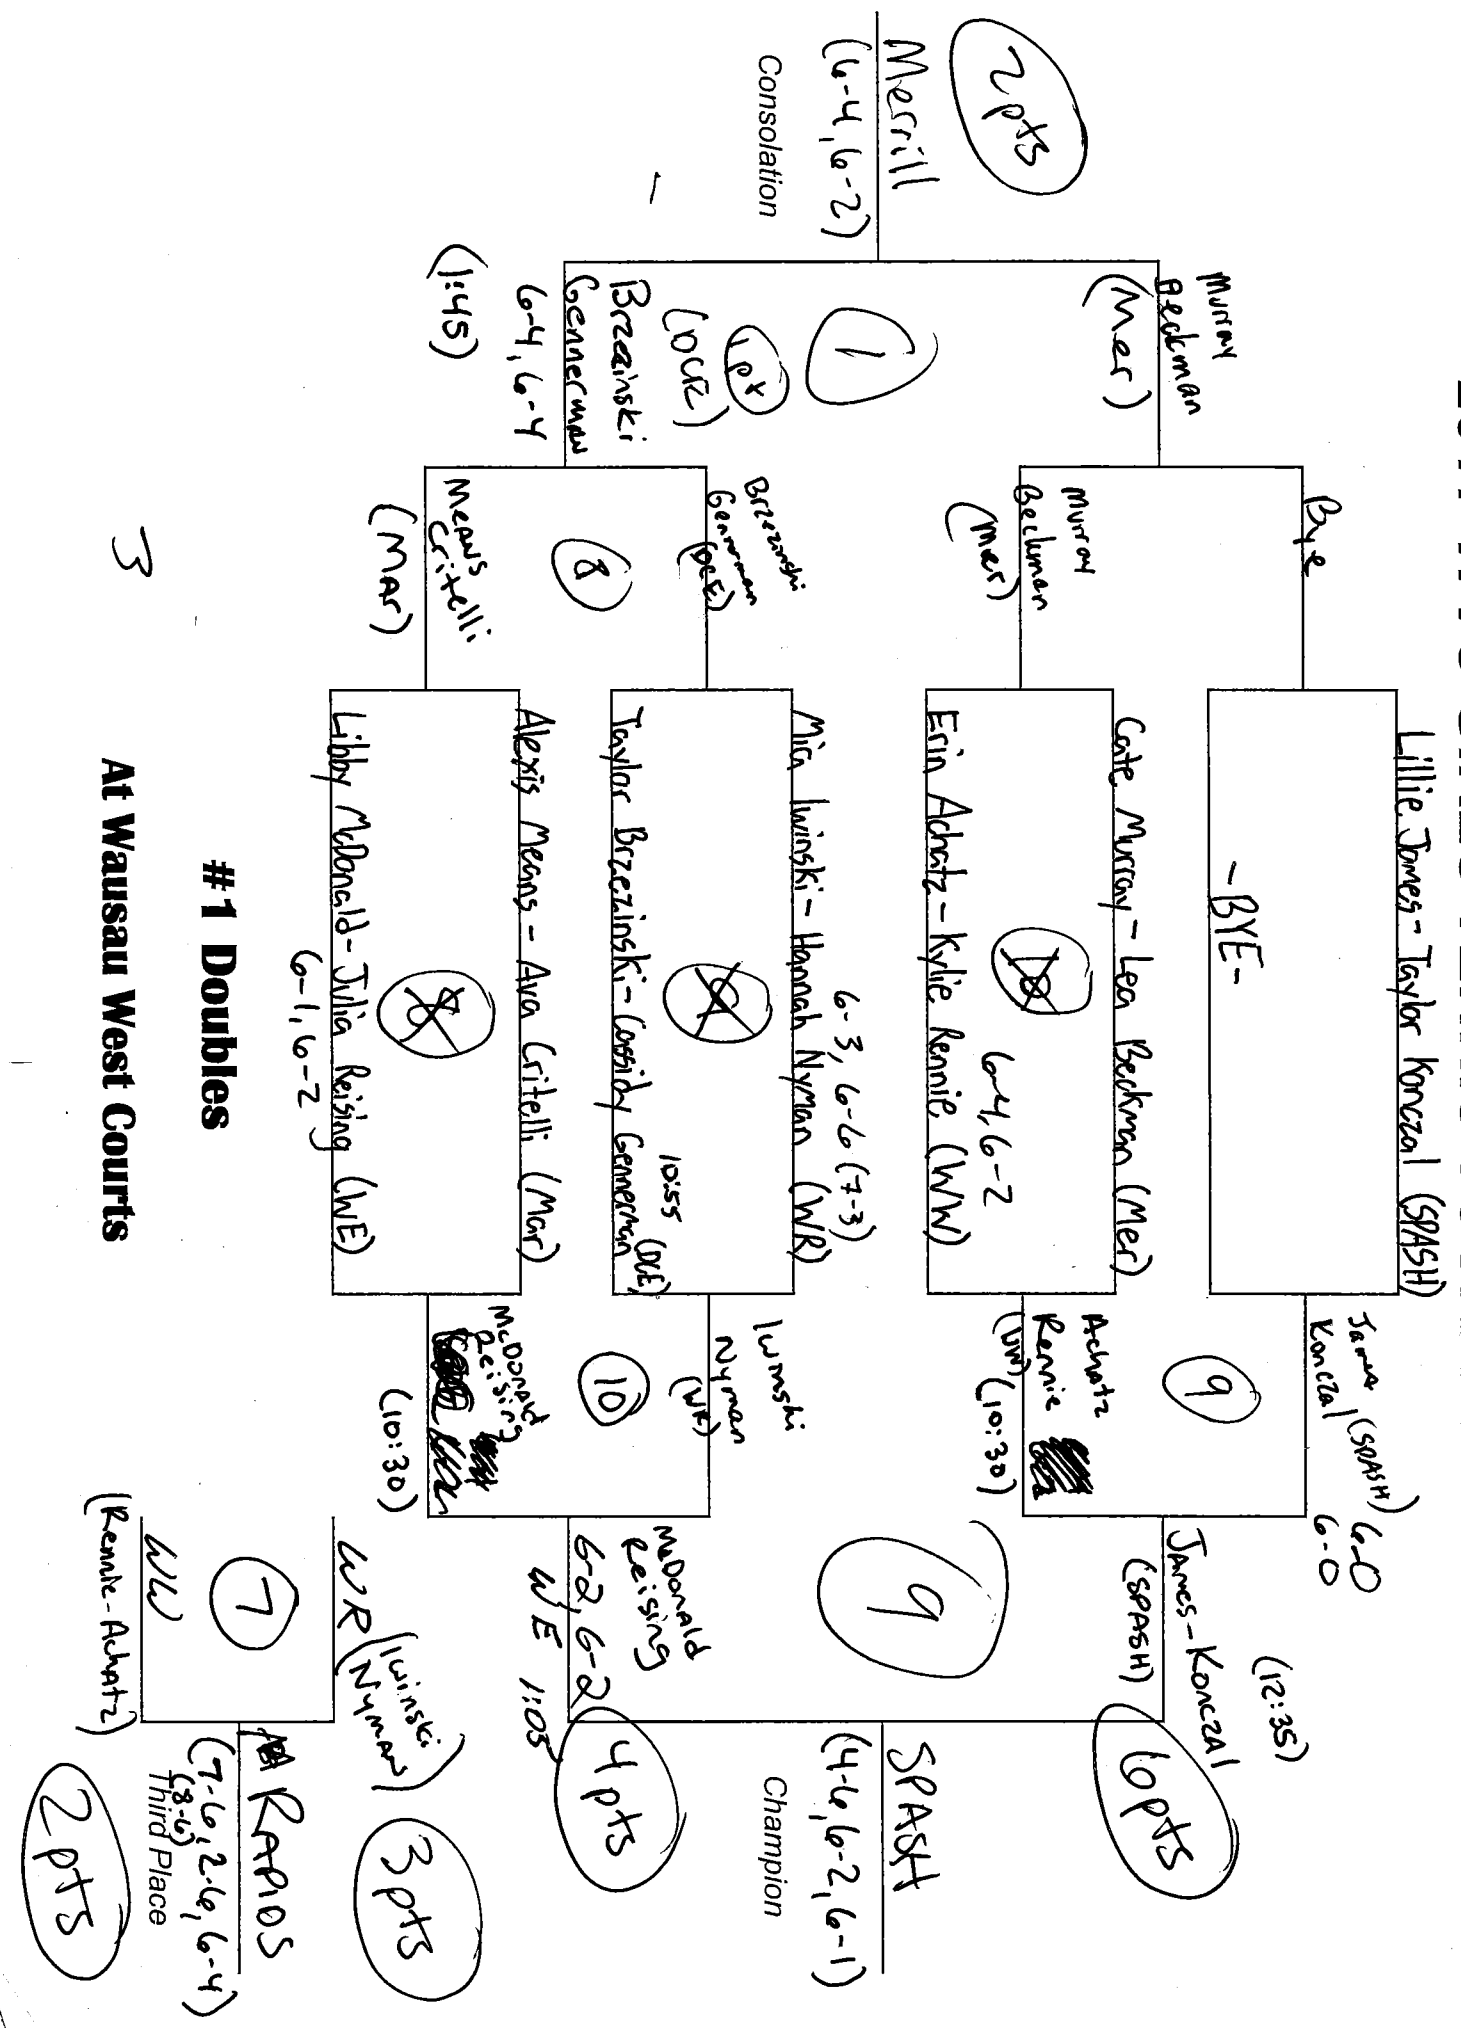 Lillie James - Taylor Konczal (SPASH)
- BYE -
Cate Murray - Lea Beckman (Mer)
Erin Achatz - Kylie Rennie (WW)
6-4, 6-2
6-3, 6-6 (7-3)
Mica Iwinski - Hannah Nyman (WR)
10:55
Taylor Brzezinski - Cassidy Gennerman (DCE)
Alexis Means - Ava Critelli (Mar)
8
Libby McDonald - Julia Reising (WE)
6-1, 6-2
James
Konczal (SPASH)
6-0
6-0
9
Achatz
Rennie
(WW) (10:30)
Iwinski
Nyman
(WR)
10
McDonald
Reising
(10:30)
(12:35)
James - Konczal
(SPASH)
6pts
9
McDonald
Reising
6-2, 6-2
WE 1:05
4pts
SPASH
(4-6, 6-2, 6-1)
Champion
WR (Iwinski
Nyman)
3pts
7
WW
(Rennie-Achatz)
RAPIDS
(7-6, 2-6, 6-4)
(8-6)
Third Place
2pts
Bye
Murray
Beckman
(Mer)
Brzezinski
Gennerman
(DCE)
8
Means
Critelli
(MAR)
Murray
Beckman
(Mer)
1
1pt
(DCE)
Brzezinski
Gennerman
6-4, 6-4
(1:45)
2pts
Merrill
(6-4, 6-2)
Consolation
#1 Doubles
At Wausau West Courts
3